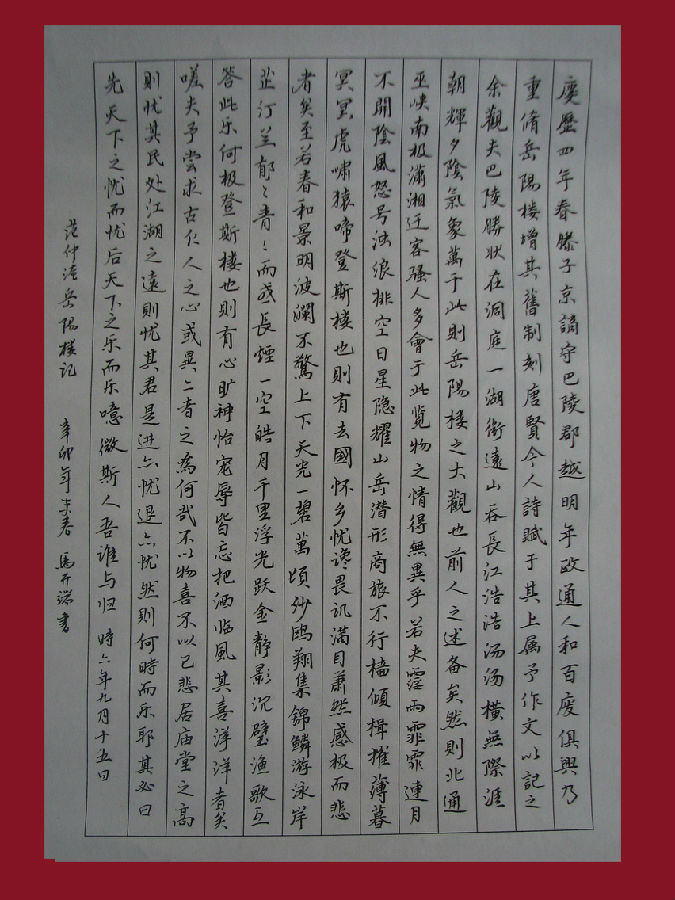 慶歷四年春滕子京謫守巴陵郡越明年政通人和百废俱興乃
重脩岳陽楼增其舊制刻唐賢今人詩賦于其上属予作文以記之
余觀夫巴陵勝状在洞庭一湖銜遠山吞長江浩浩汤汤横無際涯
朝輝夕陰氣象萬千此則岳陽楼之大觀也前人之述备矣然則北通
巫峡南极瀟湘迁客骚人多會于此览物之情得無異乎若夫霪雨霏霏連月
不開陰風怒号浊浪排空日星隐耀山岳潜形商旅不行樯傾楫摧薄暮
冥冥虎嘯猿啼登斯楼也則有去國怀乡忧谗畏讥滿目蕭然感极而悲
者矣至若春和景明波瀾不驚上下天光一碧萬頃沙鸥翔集錦鳞游泳岸
芷汀兰郁々青々而或長煙一空皓月千里浮光跃金静影沉璧渔歌互
答此乐何极登斯楼也則有心旷神怡宠辱皆忘把酒临風其喜洋洋者矣
嗟夫予尝求古仁人之心或異二者之為何哉不以物喜不以己悲居庙堂之高
則忧其民处江湖之遠則忧其君是进亦忧退亦忧然則何時而乐耶其必曰
先天下之忧而忧后天下之乐而乐噫微斯人吾谁与归 時六年九月十五日
范仲淹岳陽楼记 辛卯年末春 馬开瑞書